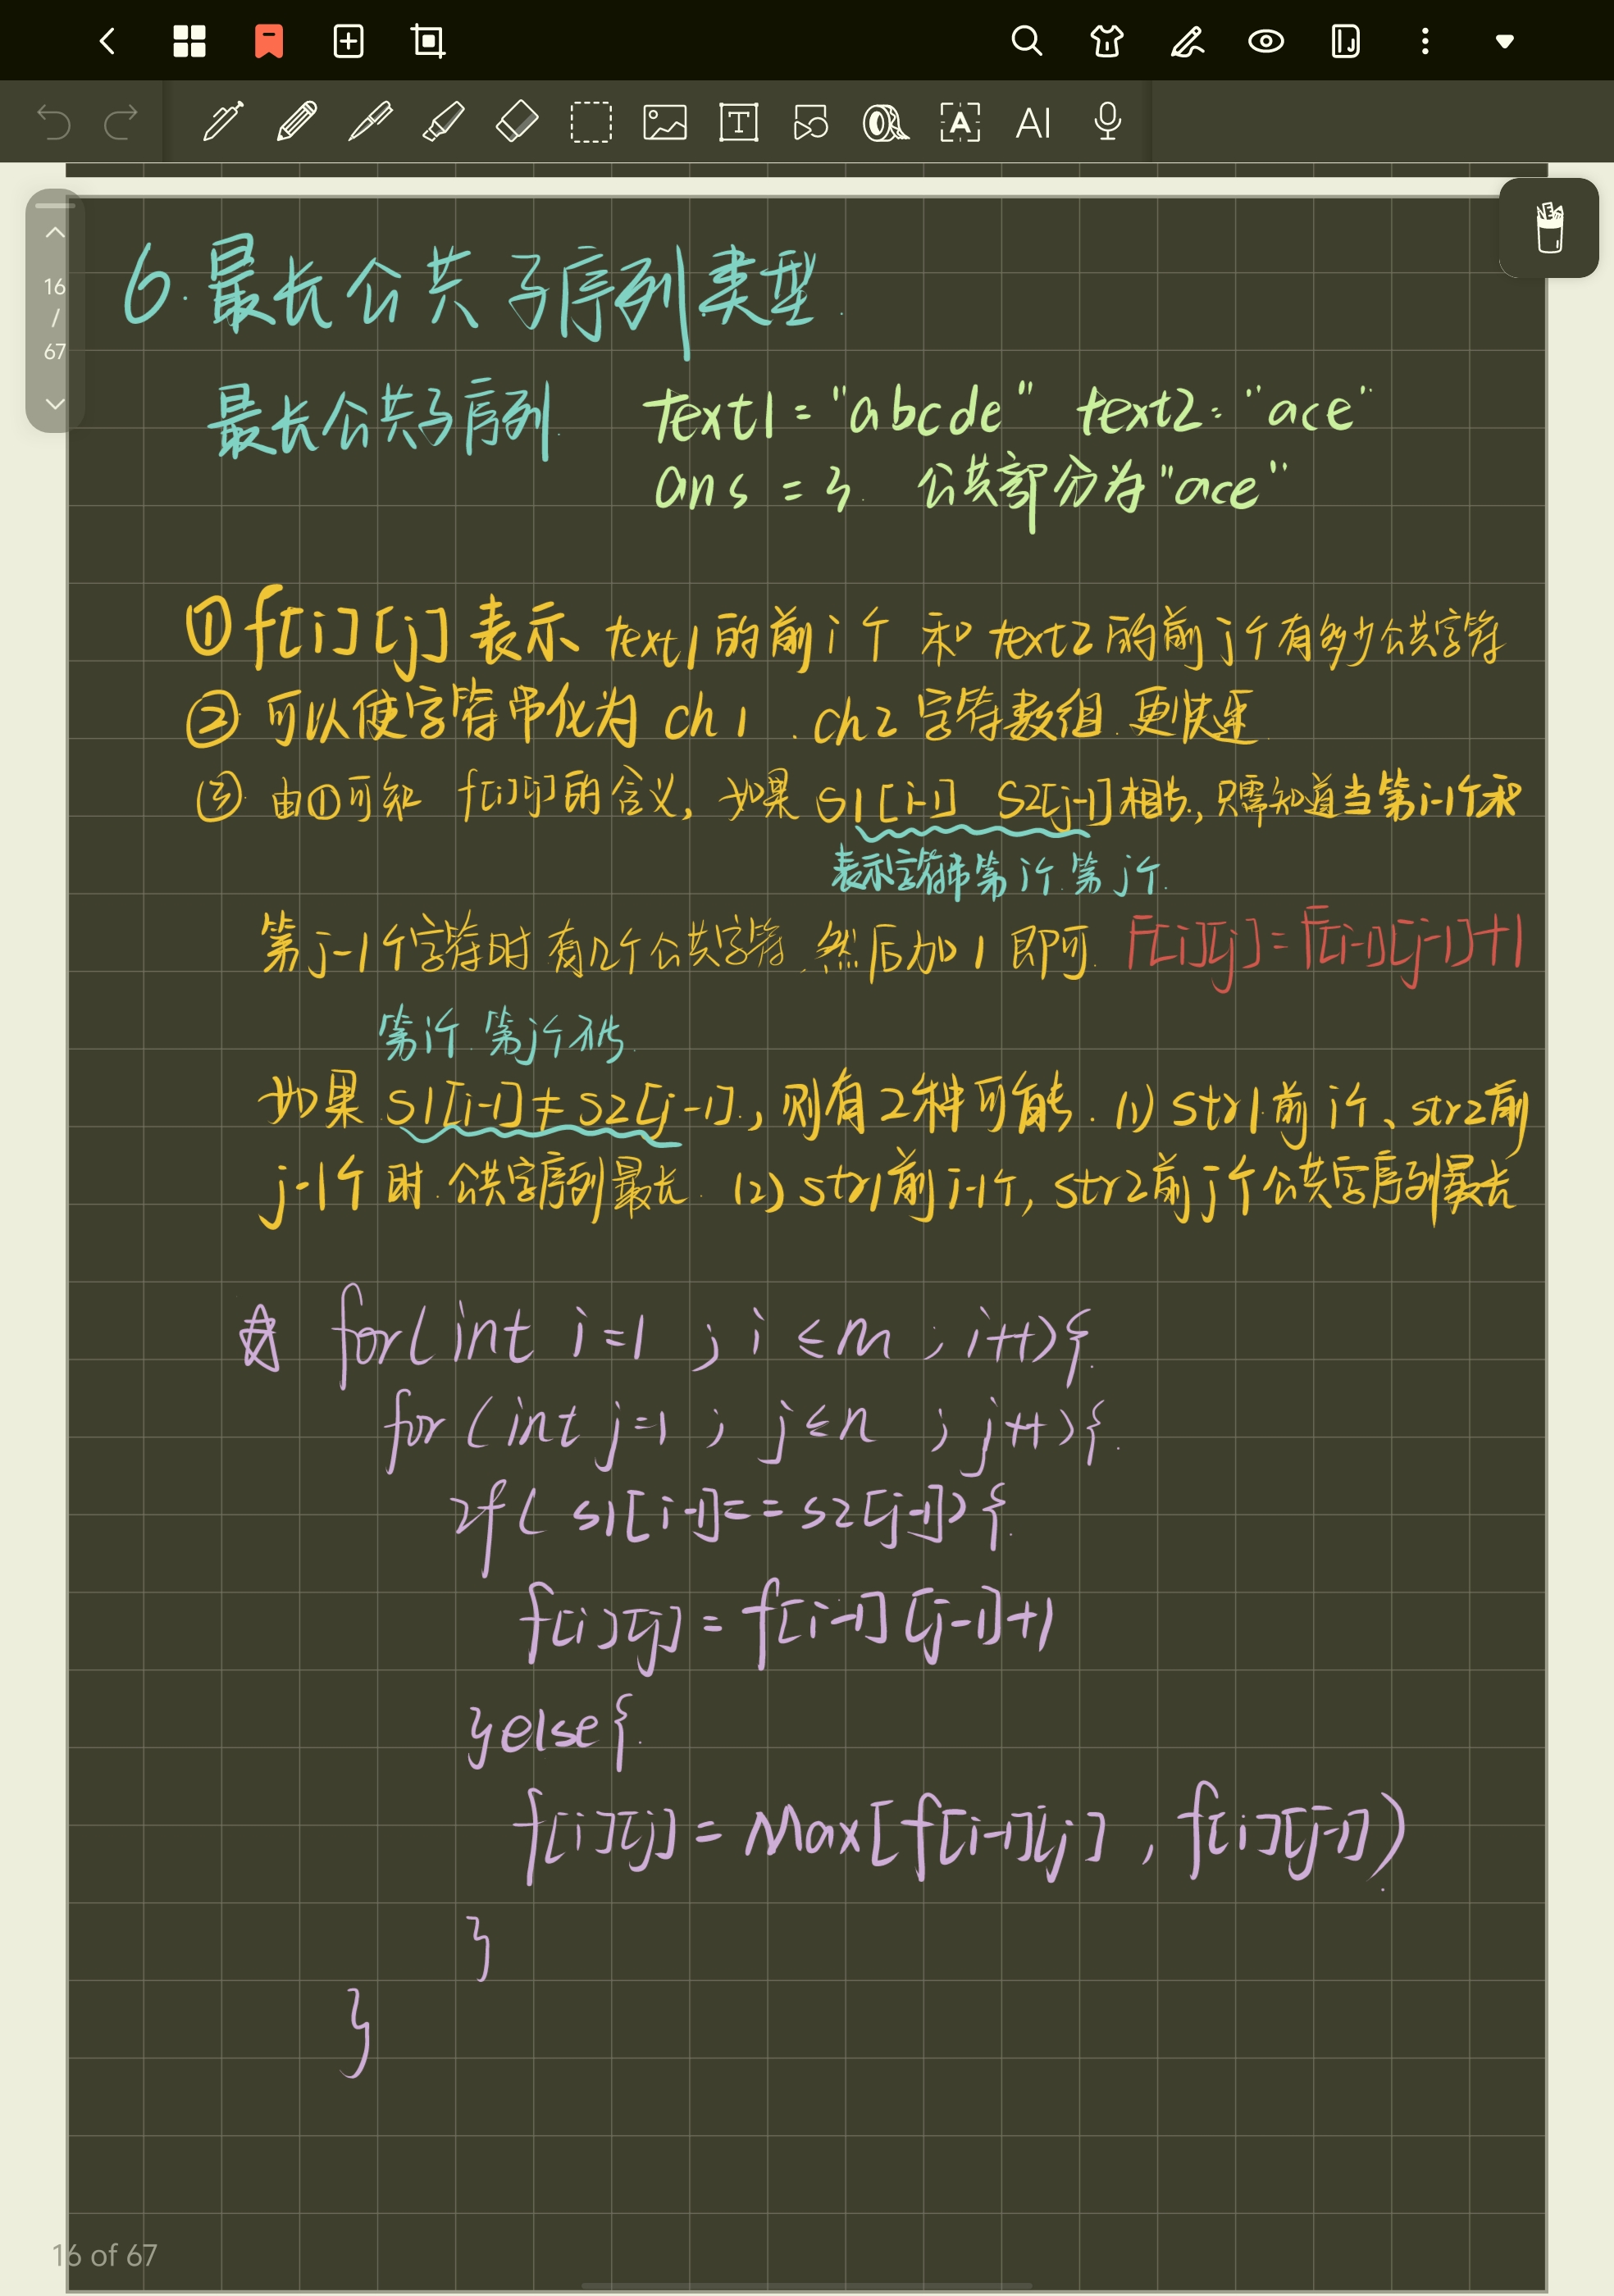 16
/
67
6.最长公共子序列类型
最长公共子序列 text1="abcde" text2="ace"
ans=3. 公共部分为"ace"
①f[i][j]表示 text1的前i个 和 text2的前j个有多少公共字符
② 可以使字符串化为 ch1. ch2 字符数组.更快速
③ 由①可知 f[i][j]的含义, 如果 S1[i-1] S2[j-1]相等, 只需知道当第i-1个和
表示字符串第i个.第j个.
第j-1个字符时 有几个公共字符.然后加1即可. F[i][j]=F[i-1][j-1]+1
第i个.第j个不等.
如果 S1[i-1]≠S2[j-1], 则有2种可能. (1) str1前i个、str2前
j-1个时.公共字序列最长. (2) str1前i-1个, str2前j个公共字序列最长
☆ for(int i=1 ; i≤m ; i++){
for(int j=1 ; j≤n ; j++){
if( s1[i-1]==s2[j-1]){
f[i][j]=f[i-1][j-1]+1
}else{
f[i][j]=Max[f[i-1][j] , f[i][j-1])
}
}
16 of 67